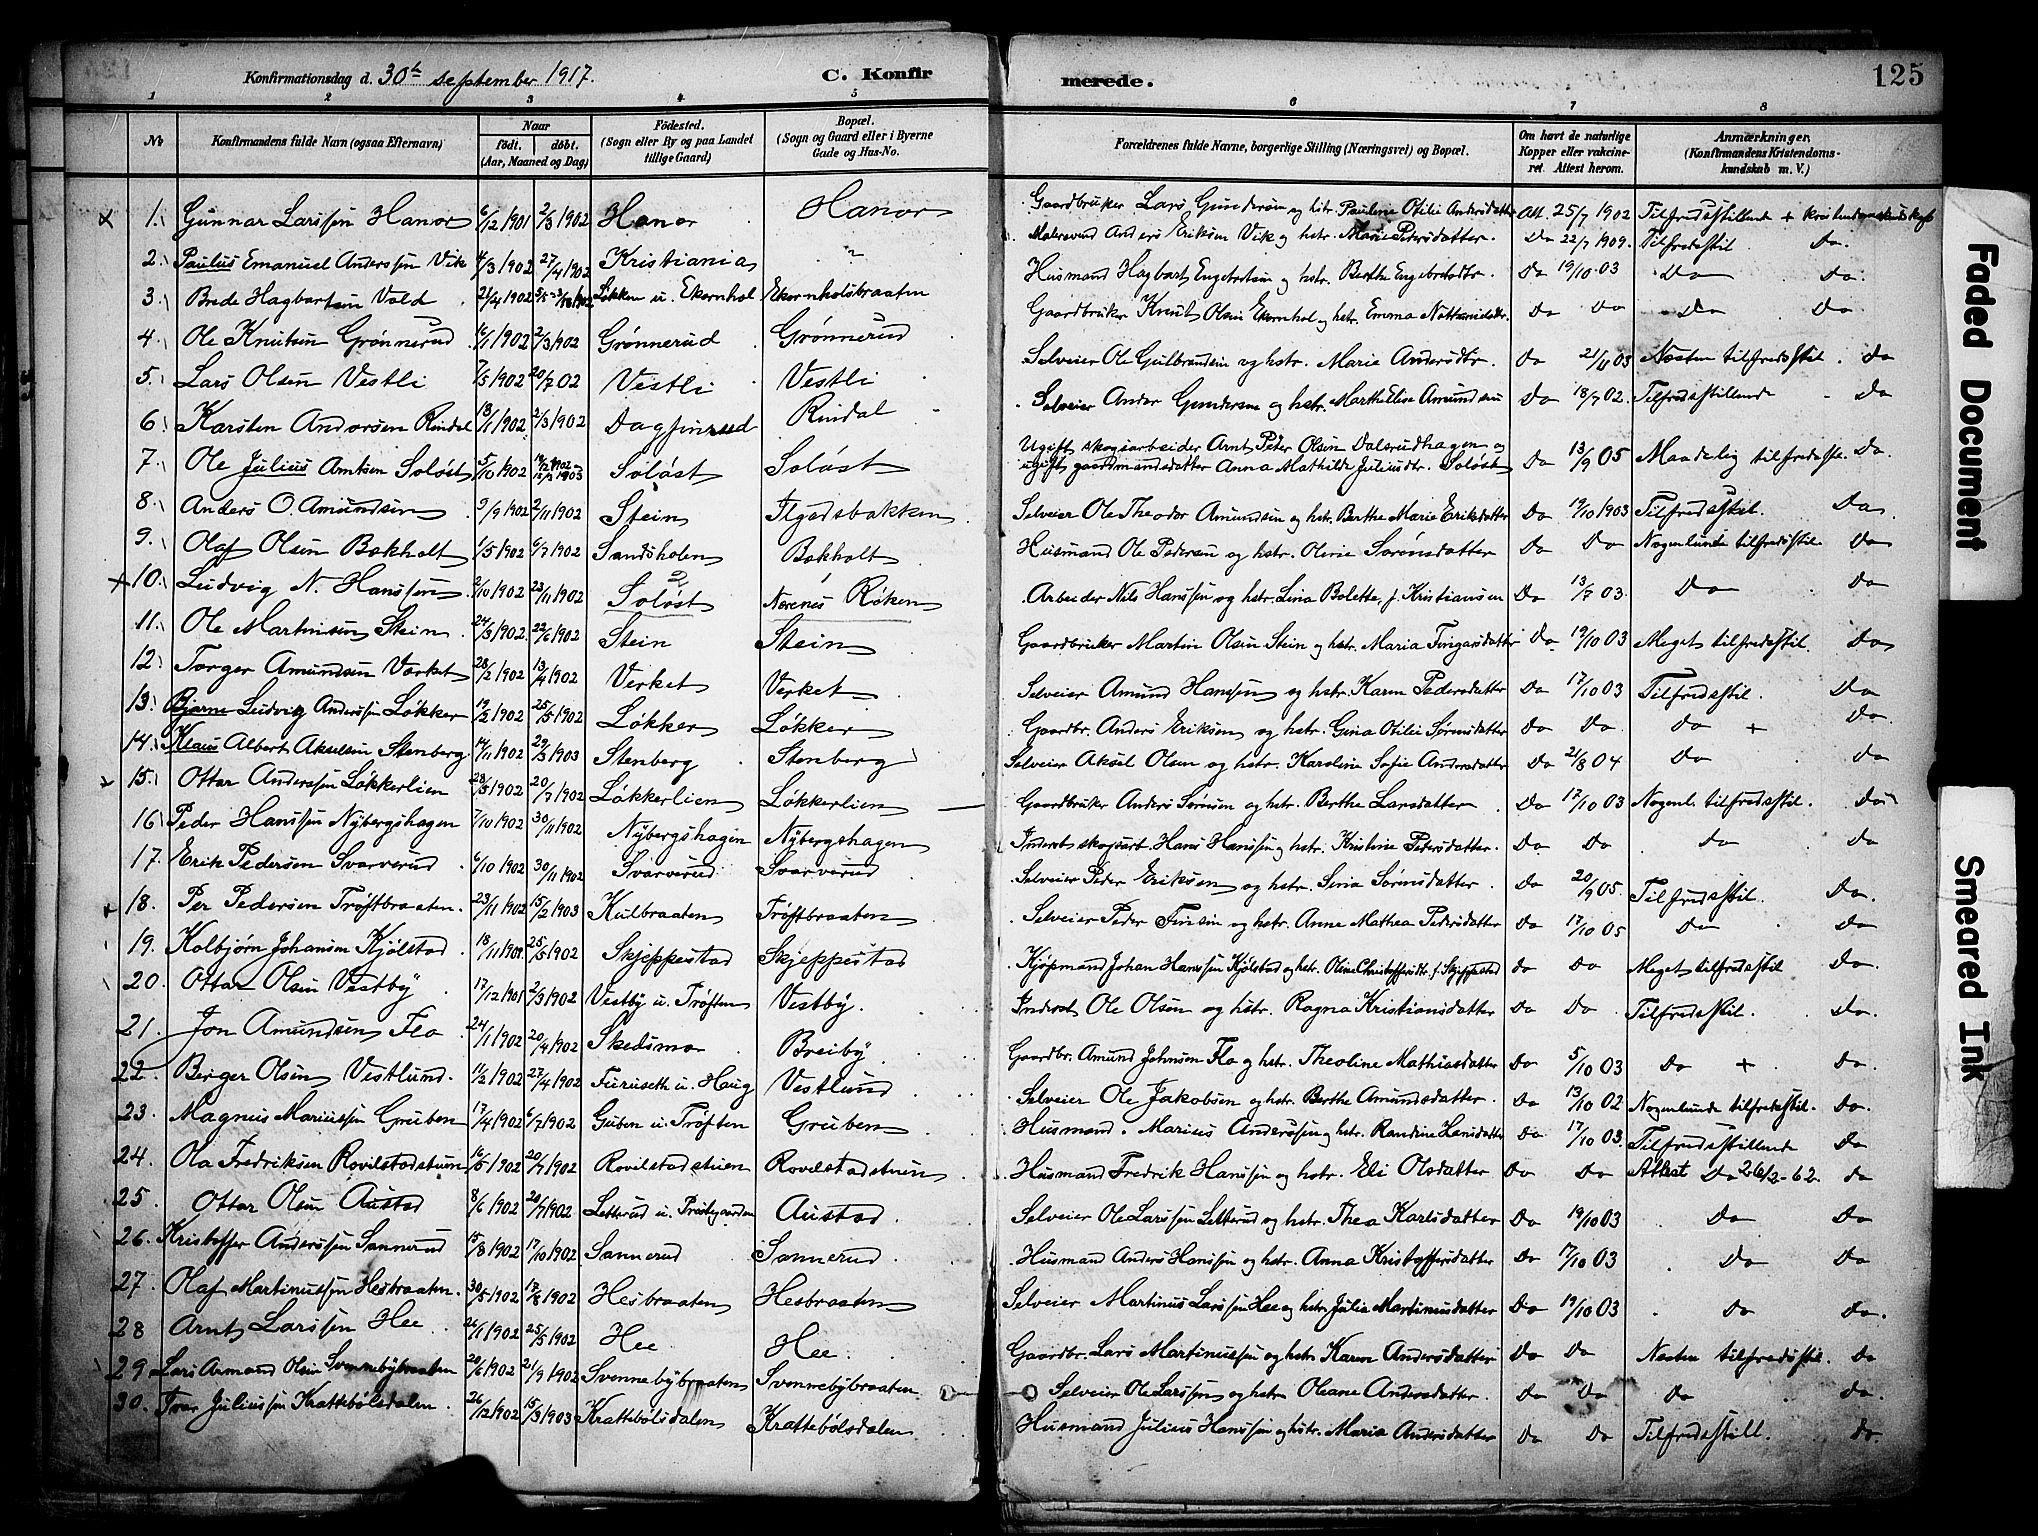 Konfirmationsdag d. 30te september 1917.
C. Konfirmerede.
125
1 2 3 4 5 6 7 8
No
Konfirmandens fulde Navn (ogsaa Efternavn)
Naar
født. døbt.
(Aar, Maaned og Dag)
Fødested.
(Sogn eller By og paa Landet
tillige Gaard)
Bopæl.
(Sogn og Gaard eller i Byerne
Gade og Hus-No.
Forældrenes fulde Navne, borgerlige Stilling (Næringsvei) og Bopæl.
Om havt de naturlige
Kopper eller vakcine-
ret. Attest herom.
Anmærkninger.
(Konfirmandens Kristendoms-
kundskab m. V.)
1. Gunnar Larssen Hanor 6/12 1901 2/3 1902 Hanor Hanor Gaardbruker Lars Gundersen og hstr. Pauline Otilie Andersdatter Att. 25/7 1902 Tilfredsstillende + kristendomskundskab
2. Paulus Emanuel Anderssen Vik 4/3 1902 27/4 1902 Kristiania " Anders Eriksen Vik og hstr. Marie Pedersdatter. Do 22/7 1909. Tilfredsstil Do.
3. Brede Hagbartsen Vold 21/4 1902 Løkken u. Ekornhol Ekornholsbraaten Husmand Hagbart Engebretsen og hstr. Berthe Engebretsdtr. Do 19/10 03 Do Do.
4. Ole Knutsen Grønnerud 16/1 1902 2/3 1902 Grønnerud Grønnerud Gaardbruker Knut Olsen Ekornhol og hstr. Emma Do Do Do Do
5. Lars Olsen Vestli 7/5 1902 20/7 02 Vestli Vestli Selveier Ole Gulbrandsen og hstr. Marie Andersdtr. Do 21/11 03 Næsten tilfredsstil. Do
6. Karsten Andersen Rindal 13/1 1902 2/3 1902 Dagfinrud Rindal Selveier Anders Gundersen og hstr. Marthe Elise Amundsen Do 18/7 02. Tilfredsstillende Do
7. Ole Julius Arntsen Soløst 5/10 1902 Soløst Soløst Ugift skogsarbeider Arnt Peter Olsen Dalsrudhagen og
ugift gaardmandsdatter Anna Mathilde Juliusdtr. Soløst Do 13/9 05 Maadelig tilfredsst. Do.
8. Anders O. Amundsen 9/9 1902 2/11 1902 Stein Ilgadsbakken Selveier Ole Theodor Amundsen og hstr. Berthe Marie Eriksdatter Do 19/10 1903 Tilfredsstil. Do
9. Olaf Olsen Bokholt 1/5 1902 6/7 1902 Sandsholen Bokholt Husmand Ole Pedersen og hstr. Olerie Sørensdatter Do Do Nogenlunde tilfredsstil. Do
10. Ludvig N. Hanssen 2/10 1902 23/11 1902 Soløst Nærenes Røken Arbeider Nils Hanssen og hstr. Lina Bolette, f. Kristiansen Do 13/7 03. Do Do
11. Ole Martinsen Stein 24/3 1902 22/6 1902 Stein Stein Gaardbruker Martin Olsen Stein og hstr. Maria Fingarsdatter Do 19/10 03 Meget tilfredsstil. Do
12. Torger Amundsen Værket 28/2 1902 13/4 1902 Verket Verket Selveier Amund Hanssen og hstr. Karen Pedersdatter Do 17/10 03 Tilfredsstil. Do
13. Bjarne Ludvig Anderssen Løkker 19/3 1902 25/5 1902 Løkker Løkker Gaardbr. Anders Eriksen og hstr. Gina Otilie Sørensdatter Do Do Do + Do.
14. Klaus Albert Akselsen Stenberg 14/11 1902 29/3 1903 Stenberg Stenberg Selveier Aksel Olsen og hstr. Karoline Sofie Andersdatter Do 21/8 04 Do Do
15. Ottar Anderssen Løkkerlien 28/5 1902 20/7 1902 Løkkerlien Løkkerlien Gaardbruker Anders Sørensen og hstr. Berthe Larsdatter Do 17/10 03 Nogenl. tilfredsstil. Do
16 Peder Hanssen Nybergshagen 7/10 1902 30/11 1902 Nybergshagen Nybergshagen Inderst skogsarb. Hans Hanssen og hstr. Kristine Pedersdatter. Do Do Do Do
17. Erik Pedersen Svarverud 6/10 1902 30/11 1902 Svarverud Svarverud Selveier Peder Eriksen og hstr. Sina Sørensdatter. Do 20/9 05. Tilfredsstil. Do.
18. Per Pedersen Trøftbraaten. 23/11 1902 15/2 1903 Kulbraaten Trøftbraaten Selveier Peder Finsen og hstr. Anne Mathea Pedersdatter Do 17/10 05 Do Do
19. Kolbjørn Johansen Kjølstad 18/11 1901 25/5 1902 Skjeppestad Skjeppestad Kjøpmand Johan Hanssen Kjølstad og hstr. Oline Christoffersdtr. f. Skjeppestad Do Do Meget tilfredsstil Do.
20. Ottar Olsen Vestby 17/12 1901 2/3 1902 Vestby u. Trøften Vestby. Inderst Ole Olsen og hstr. Ragna Kristiansdatter Do Do Tilfredsstil. Do.
21. Jon Amundsen Flo 24/1 1902 20/4 1902 Skedsmo Breiby Gaardbr. Amund Johnsen Flo og hstr. Theoline Mathiasdatter Do 5/10 03 Do + Do.
22. Berger Olsen Vestlund. 11/2 1902 27/4 1902 Furuseth u. Haug Vestlund Selveier Ole Jakobsen og hstr. Berthe Amundsdatter. Do 13/10 02 Nogenlunde tilfredsstil. Do.
23. Magnus Mariussen Gruben 17/4 1902 6/7 1902 Guben u. Trøften Gruben Husmand. Marius Anderssen og hstr. Randine Larsdatter Do 17/10 03. Tilfredsstillende Do
24. Ola Fredriksen Rovilstadstuen 16/5 1902 20/7 1902 Rovilstadstuen Rovilstadstuen Husmand Fredrik Hanssen og hstr. Eli Olsdatter Do Do Attest Do 26/2-62. do
25. Ottar Olsen Austad 8/6 1902 20/7 1902 Letterud u. Prestegaarden Austad. Selveier Ole Larssen Letterud og hstr. Thea Karlsdatter Do 19/10 03 Do Do
26. Kristoffer Anderssen Sannerud 15/8 1902 17/10 1902 Sannerud Sannerud Husmand Anders Hanssen og hstr. Anna Kristoffersdatter Do 17/10 03 Do Do
27. Olaf Martinussen Hesbraaten. 30/5 1902 17/8 1902 Hesbraaten Hesbraaten Selveier Martinus Larssen Hee og hstr. Julie Martinusdatter Do 19/10 03 Do do.
28 Arnt Larssen Hee 26/1 1902 25/5 1902 Hee Hee. Gaardbr. Lars Martinussen og hstr. Karen Andersdatter Do Do Næsten tilfredsstil. Do
29 Lars Armand Olsen Svennebybraaten 20/6 1902 21/9 1902 Svennebybraaten Svennebybraaten Selveier Ole Larssen og hstr. Oleane Andersdatter. Do Do Do Do.
30. Ivar Juliussen Krattebølsdalen. 26/12 1902 15/3 1903 Krattebølsdalen Krattebølsdalen Husmand Julius Hanssen og hstr. Maria Andersdatter Do Do Tilfredsstill. do.
Faded Document
Smeared Ink